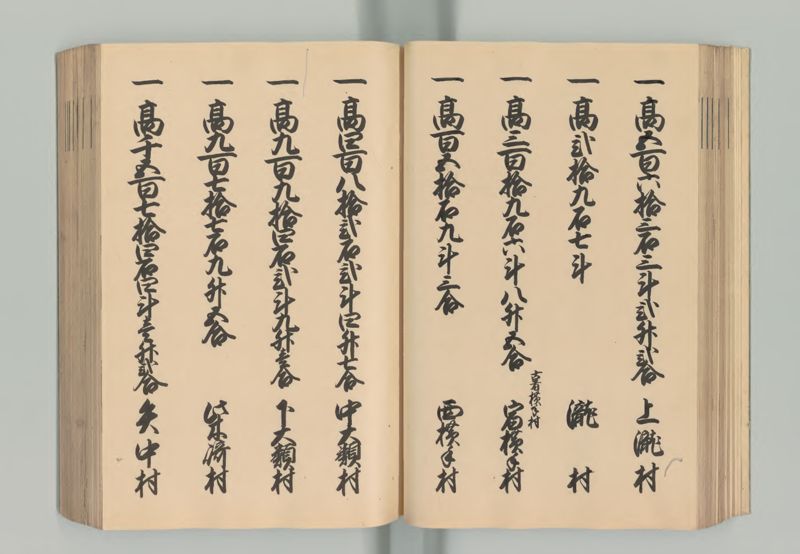 一高五百六拾三石三斗弐升弐合 上瀧村
一高弐拾九石七斗 瀧村
一高三百拾九石六斗八升五合 宿横手村
古者横手村
一高百五拾石九斗三合 西横手村
一高四百八拾弐石弐斗四升七合 中大類村
一高九百九拾四石弐斗九升壱合 下大類村
一高九百七拾七石九升五合 柴崎村
一高千五百七拾四石四斗壱升弐合 矢中村